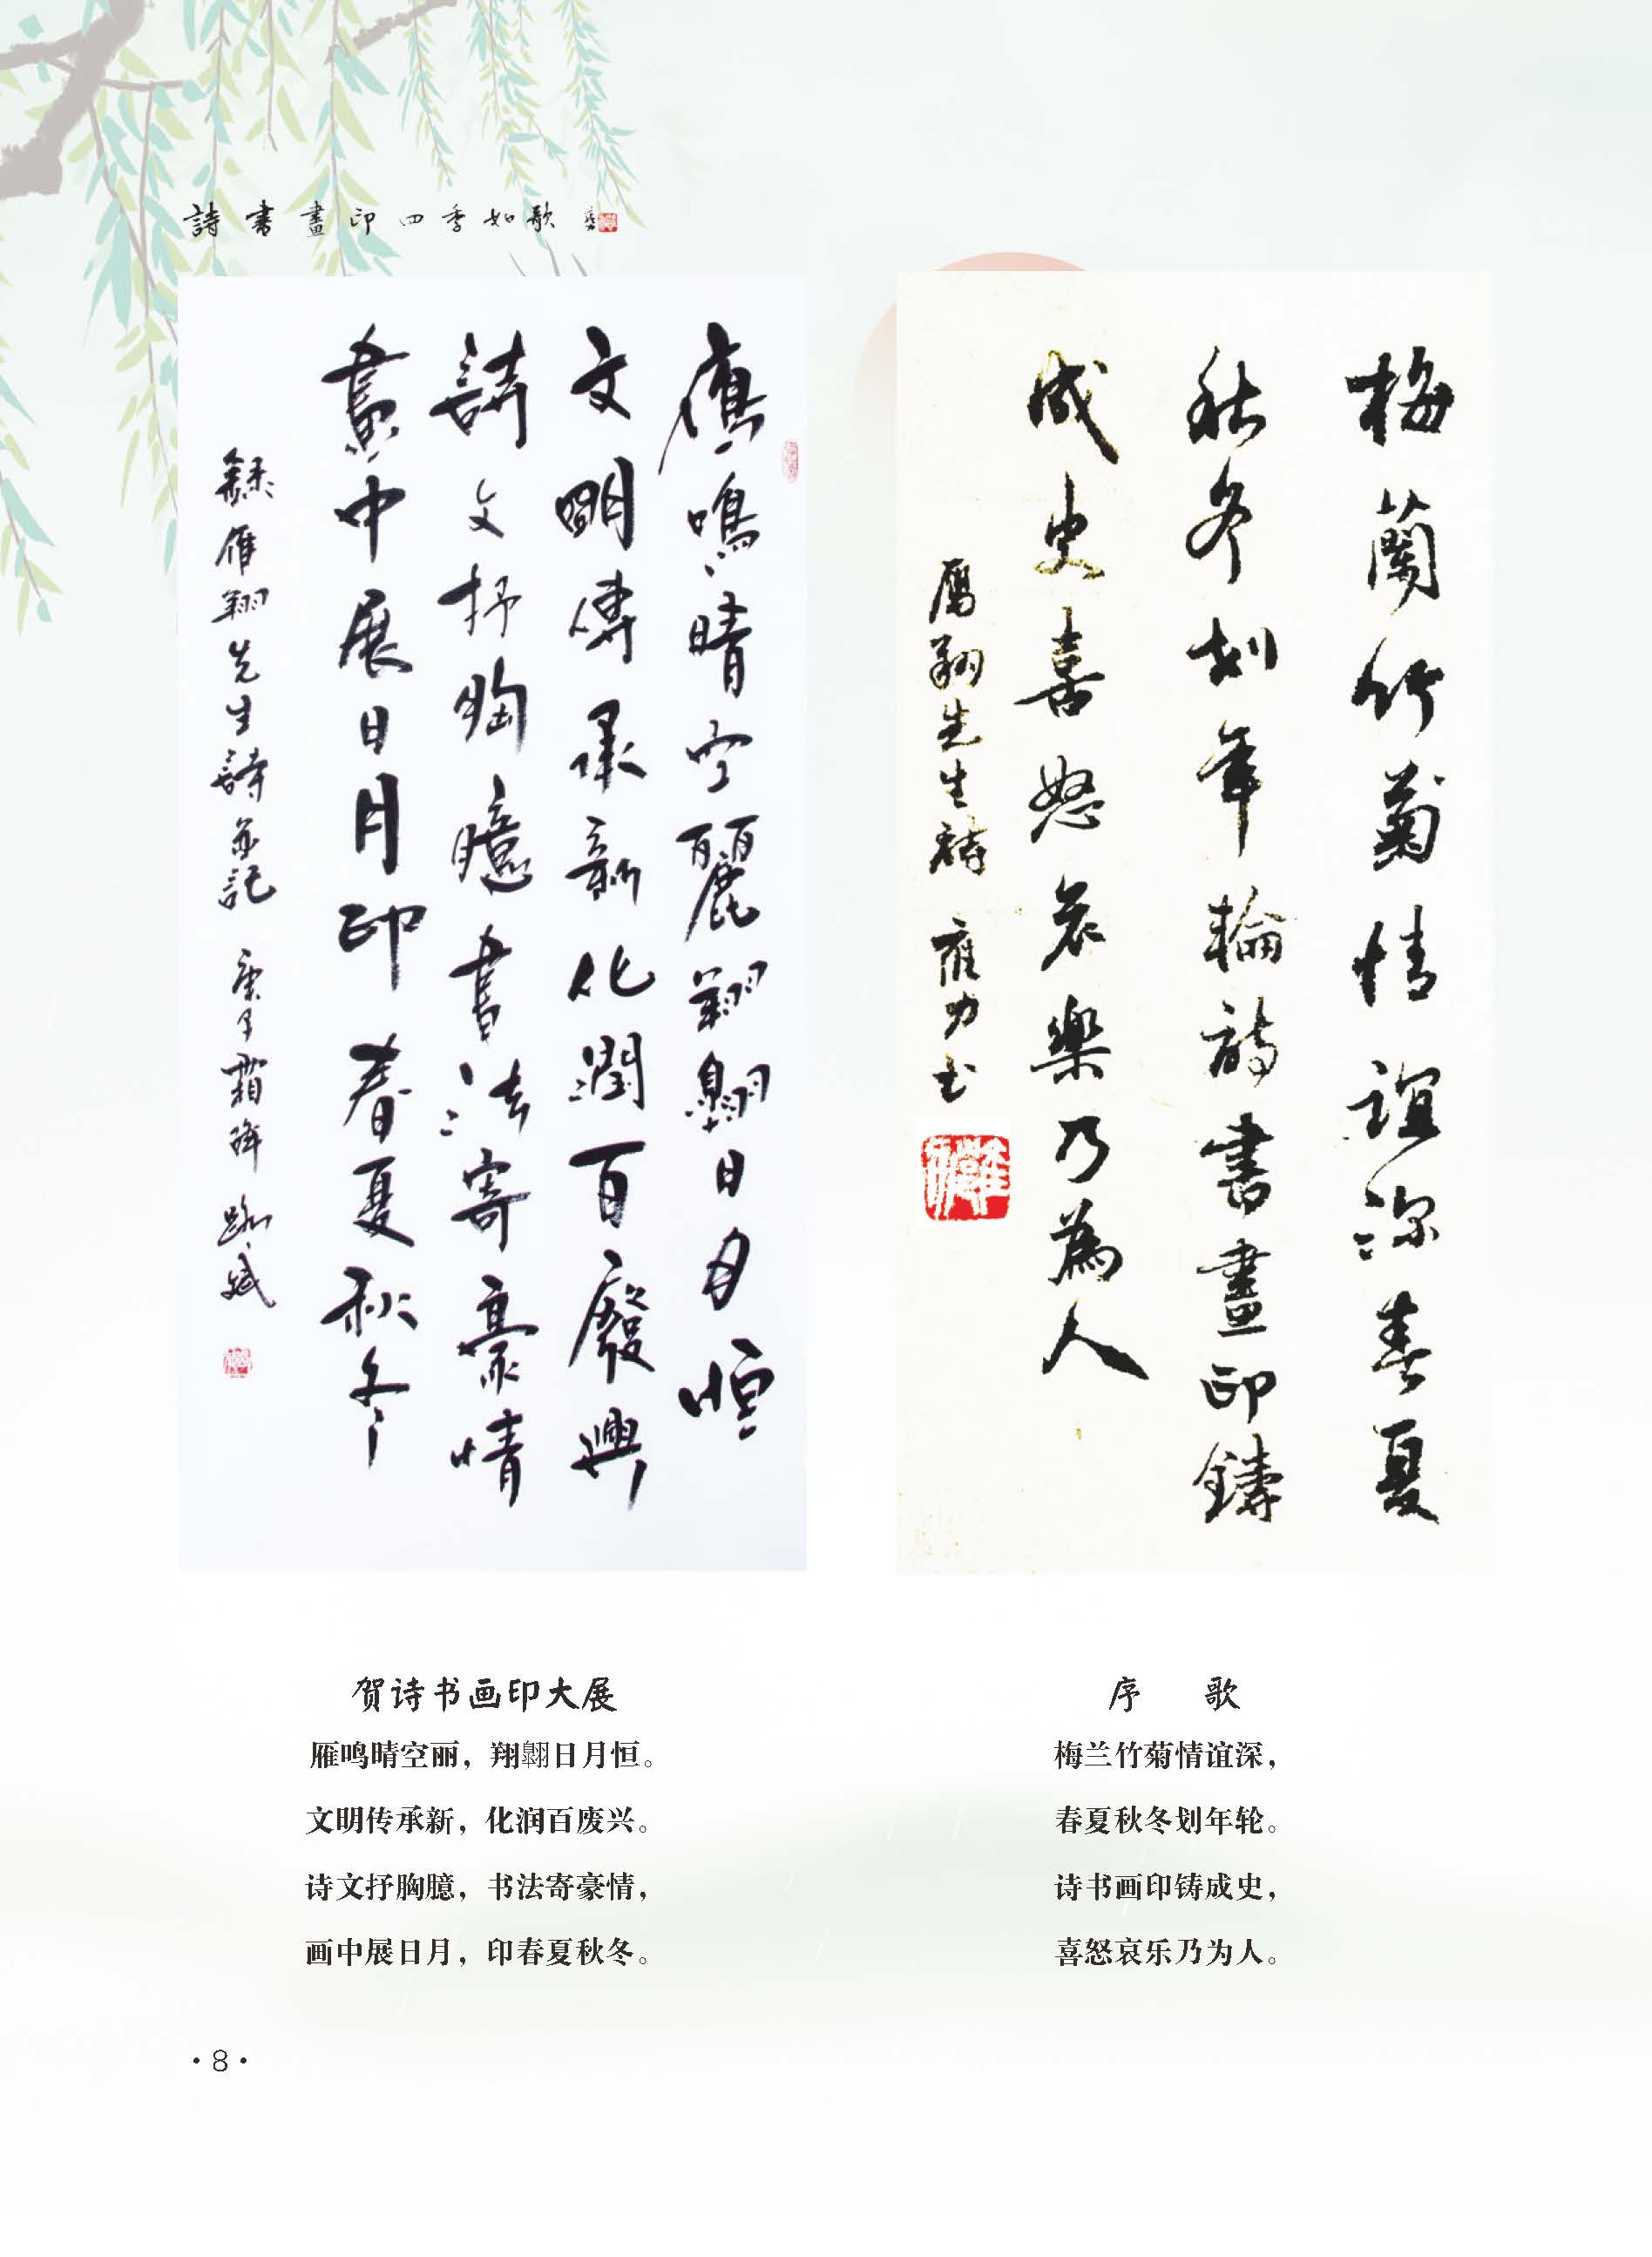 詩書畫印四季如歌
鴈鳴晴空麗翔翺日月恒
文明傳承新化潤百廢興
詩文抒胸臆書法寄豪情
畫中展日月印春夏秋冬
録雁翔先生詩並記 庚子霜降
梅蘭竹菊情誼深春夏
秋冬划年輪詩書畫印鑄
成史喜怒哀樂乃為人
鴈翔先生詩 雍力书
贺诗书画印大展
雁鸣晴空丽，翔翺日月恒。
文明传承新，化润百废兴。
诗文抒胸臆，书法寄豪情，
画中展日月，印春夏秋冬。
序 歌
梅兰竹菊情谊深，
春夏秋冬划年轮。
诗书画印铸成史，
喜怒哀乐乃为人。
·8·